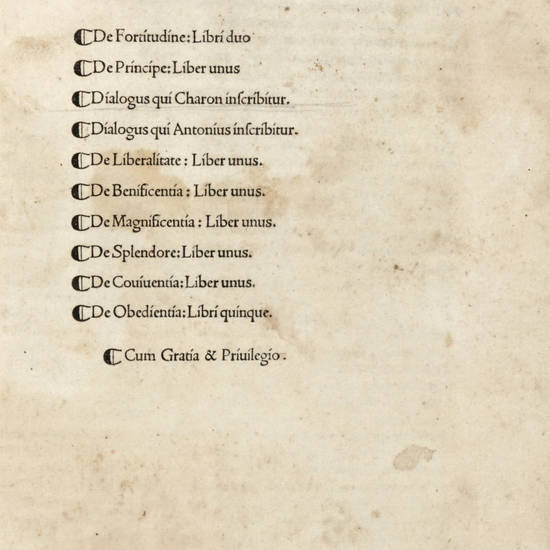 ⸿De Fortitudine: Libri duo
⸿De Principe: Liber unus
⸿Dialogus qui Charon inſcribitur.
⸿Dialogus qui Antonius inſcribitur.
⸿De Liberalitate : Liber unus.
⸿De Benificentia : Liber unus.
⸿De Magnificentia : Liber unus.
⸿De Splendore: Liber unus.
⸿De Couiuentia: Liber unus.
⸿De Obedientia: Libri quinque.
⸿ Cum Gratia & Priuilegio.